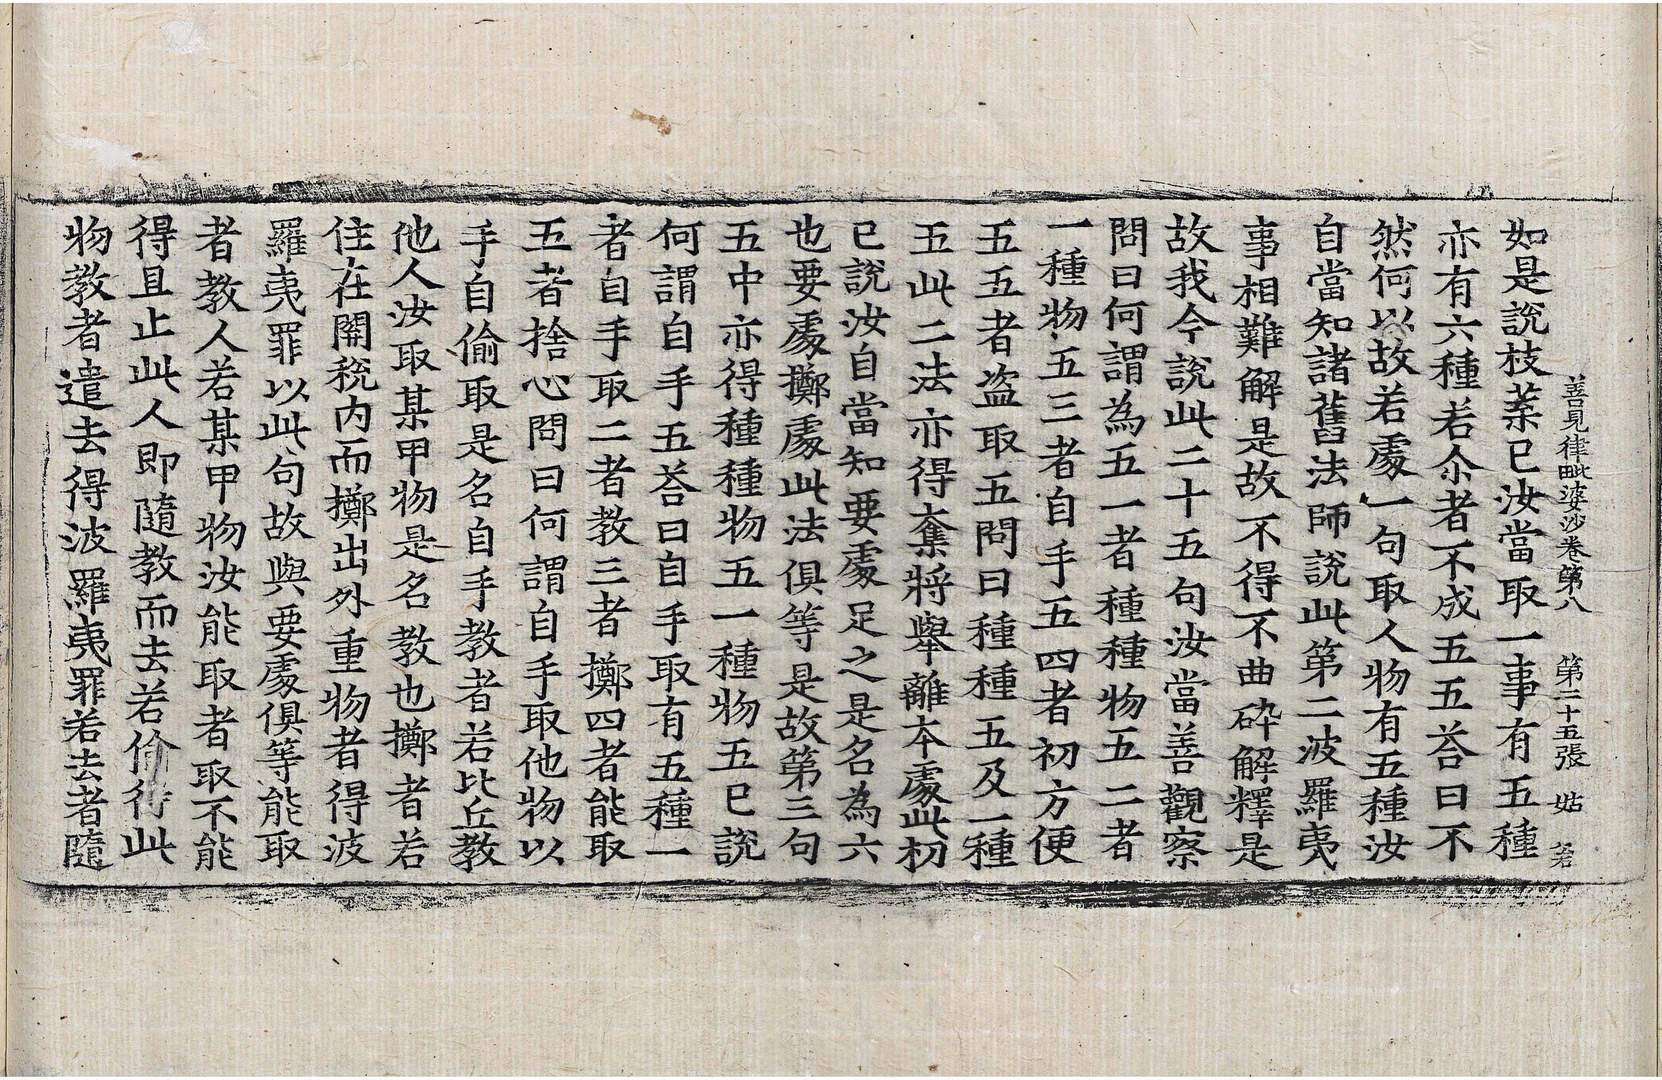 善見律毗婆沙卷第八 第二十五張 姑 岩
如是說枝葉已汝當取一事有五種
亦有六種若尒者不成五五荅曰不
然何以故若處一句取人物有五種汝
自當知諸舊法師說此第二波羅夷
事相難解是故不得不曲碎解釋是
故我今說此二十五句汝當善觀察
問曰何謂為五一者種種物五二者
一種物五三者自手五四者初方便
五五者盜取五問曰種種五及一種
五此二法亦得奪將舉離本處此初
已說汝自當知要處足之是名為六
也要處擲處此法俱等是故第三句
五中亦得種種物五一種物五已說
何謂自手五荅曰自手取有五種一
者自手取二者教三者擲四者能取
五者捨心問曰何謂自手取他物以
手自偷取是名自手教者若比丘教
他人汝取某甲物是名教也擲者若
住在關稅内而擲出外重物者得波
羅夷罪以此句故與要處俱等能取
者教人若某甲物汝能取者取不能
得且止此人即隨教而去若偷得此
物教者遣去得波羅夷罪若去者隨